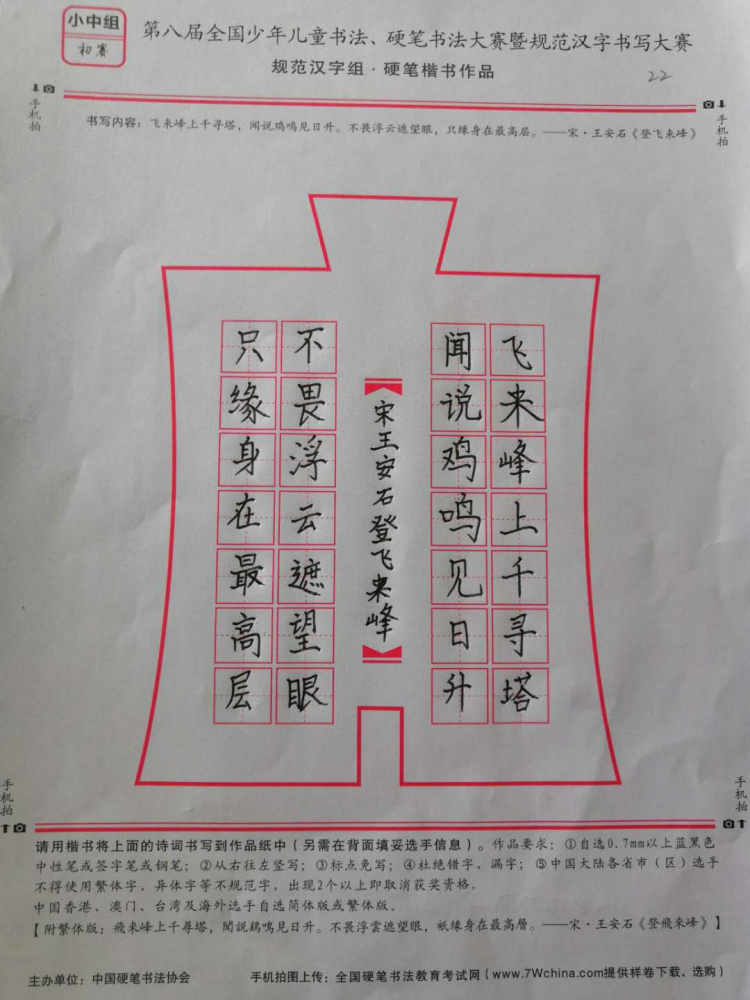 小中组
初赛
第八届全国少年儿童书法、硬笔书法大赛暨规范汉字书写大赛
规范汉字组·硬笔楷书作品
22
手机拍
手机拍
书写内容：飞来峰上千寻塔，闻说鸡鸣见日升。不畏浮云遮望眼，只缘身在最高层。——宋·王安石《登飞来峰》
飞来峰上千寻塔
闻说鸡鸣见日升
宋王安石登飞来峰
不畏浮云遮望眼
只缘身在最高层
手机拍
手机拍
请用楷书将上面的诗词书写到作品纸中（另需在背面填妥选手信息）。作品要求：①自选0.7mm以上蓝黑色
中性笔或签字笔或钢笔；②从右往左竖写；③标点免写；④杜绝错字、漏字；⑤中国大陆各省市（区）选手
不得使用繁体字、异体字等不规范字，出现2个以上即取消获奖资格。
中国香港、澳门、台湾及海外选手自选简体版或繁体版。
【附繁体版：飛來峰上千尋塔，聞說鷄鳴見日升。不畏浮雲遮望眼，祇緣身在最高層。——宋·王安石《登飛來峰》】
主办单位：中国硬笔书法协会
手机拍图上传：全国硬笔书法教育考试网（www.7Wchina.com提供样卷下载、选购）